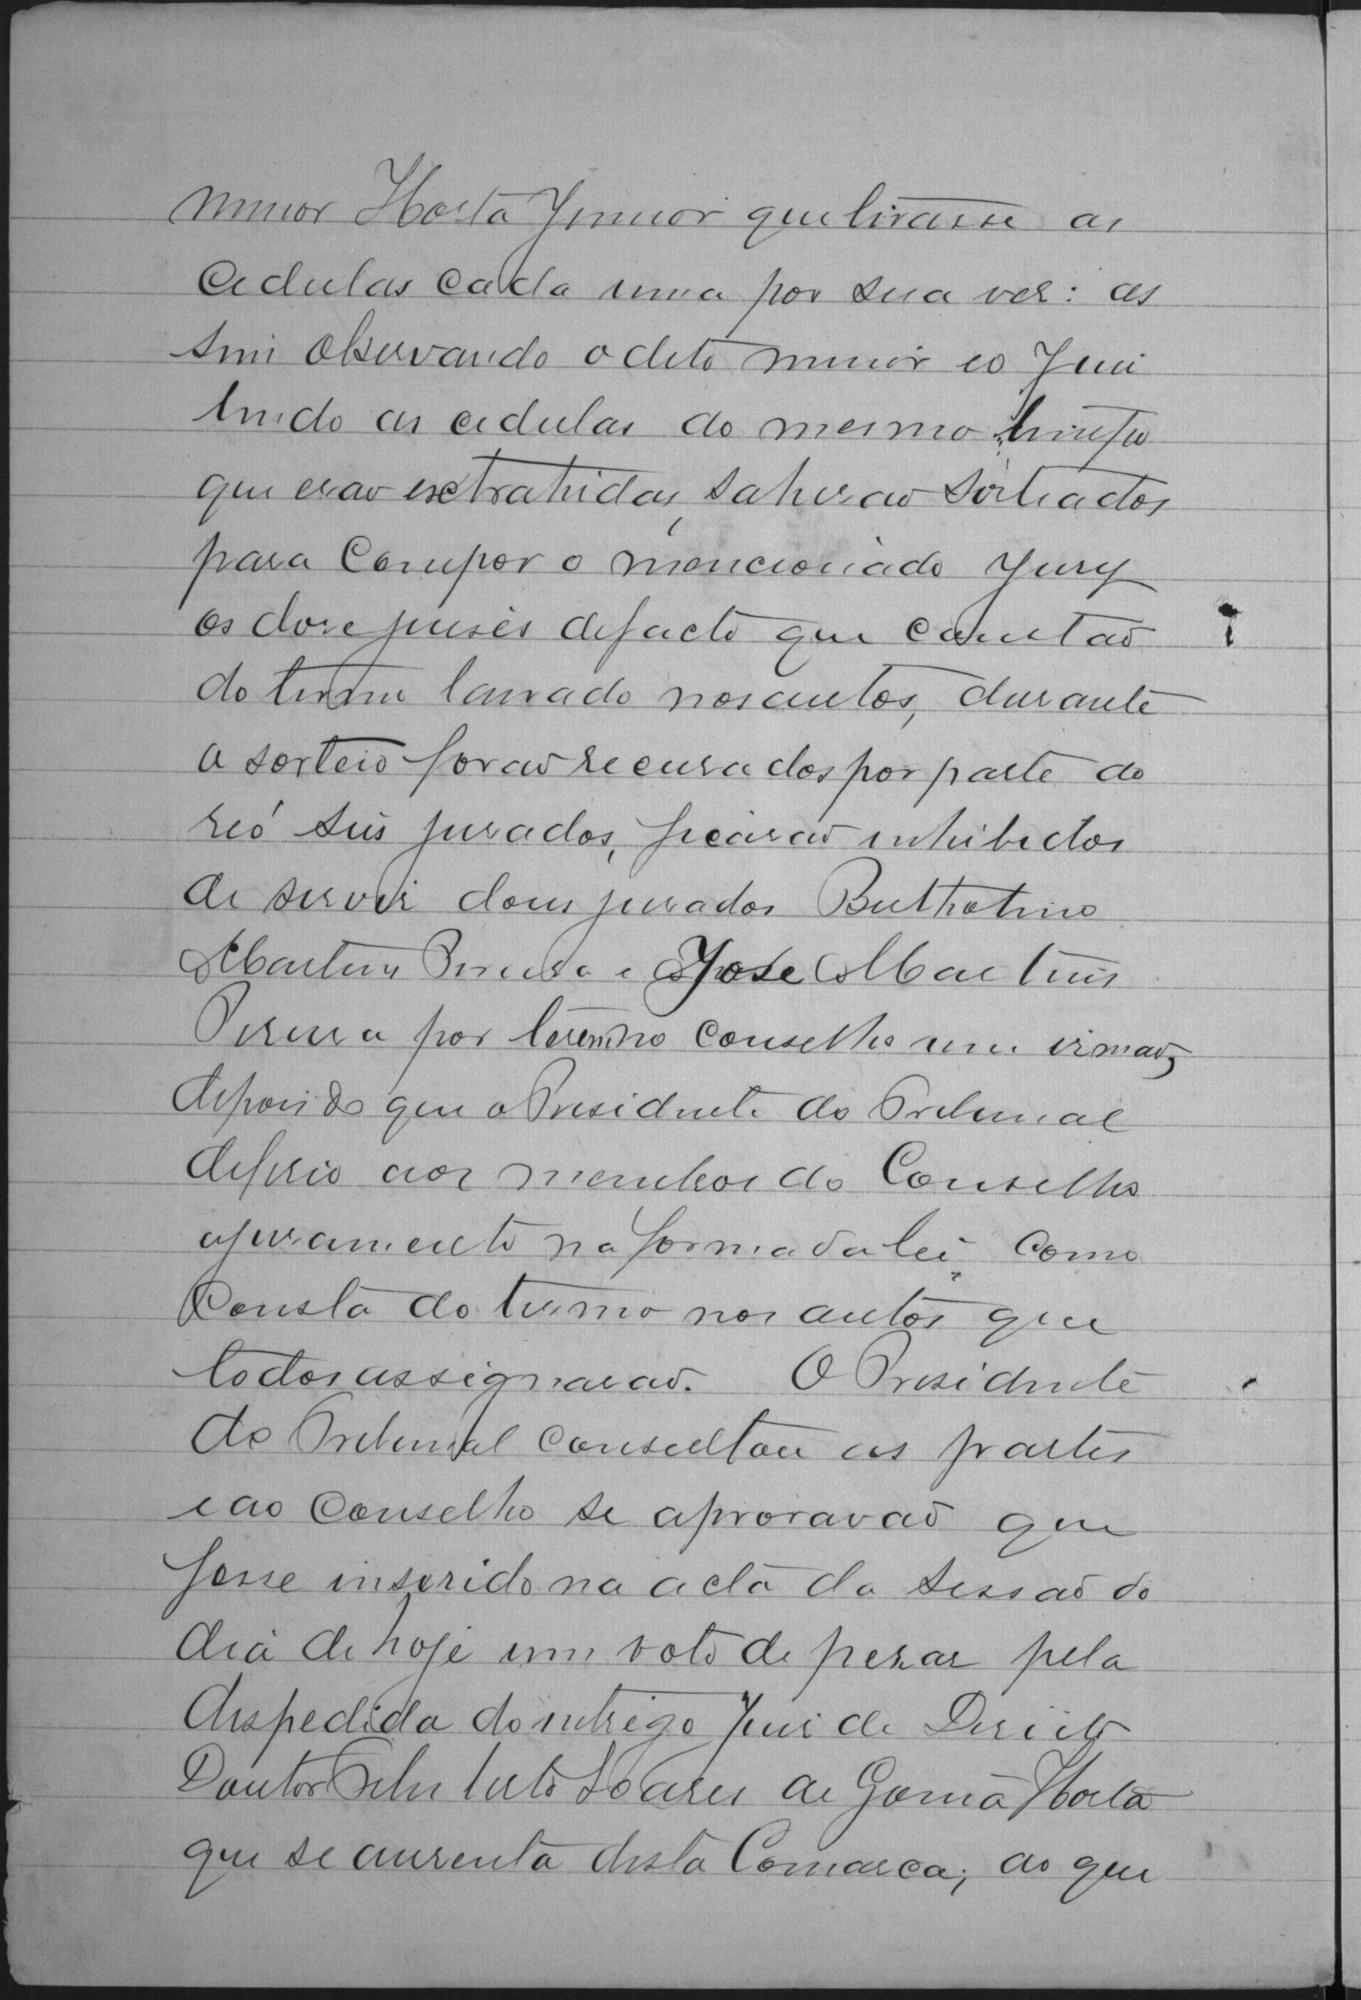 menor Horta Junior que tirasse as
cedulas cada uma por sua vez: as
sim observando o dito menor e o Juiz
lendo as cedulas ao mesmo tempo
que erão extrahidas, sahirão sorteados
para compor o mencionado Jury
os doze juises de facto que constão
do termo lavrado nos autos, durante
o sorteio forão recusados por parte do
reó seis jurados, ficarão inhibidos
de servir dous jurados
Martins Pereira e José Martins
Pereira por terem no conselho um irmão,
depois do que o Presidente do Tribunal
deferio aos membros do Conselho
o juramento na forma da lei como
consta do termo nos autos que
todos assignarão. O Presidente
do Tribunal consultou as partes
e ao Conselho se aprovavão que
fosse inserido na acta da sessão do
dia de hoje um voto de pezar pela
despedida do integro Juiz de Direito
Doutor Soares de Gouvêa Horta
que se ausenta desta Comarca; ao que